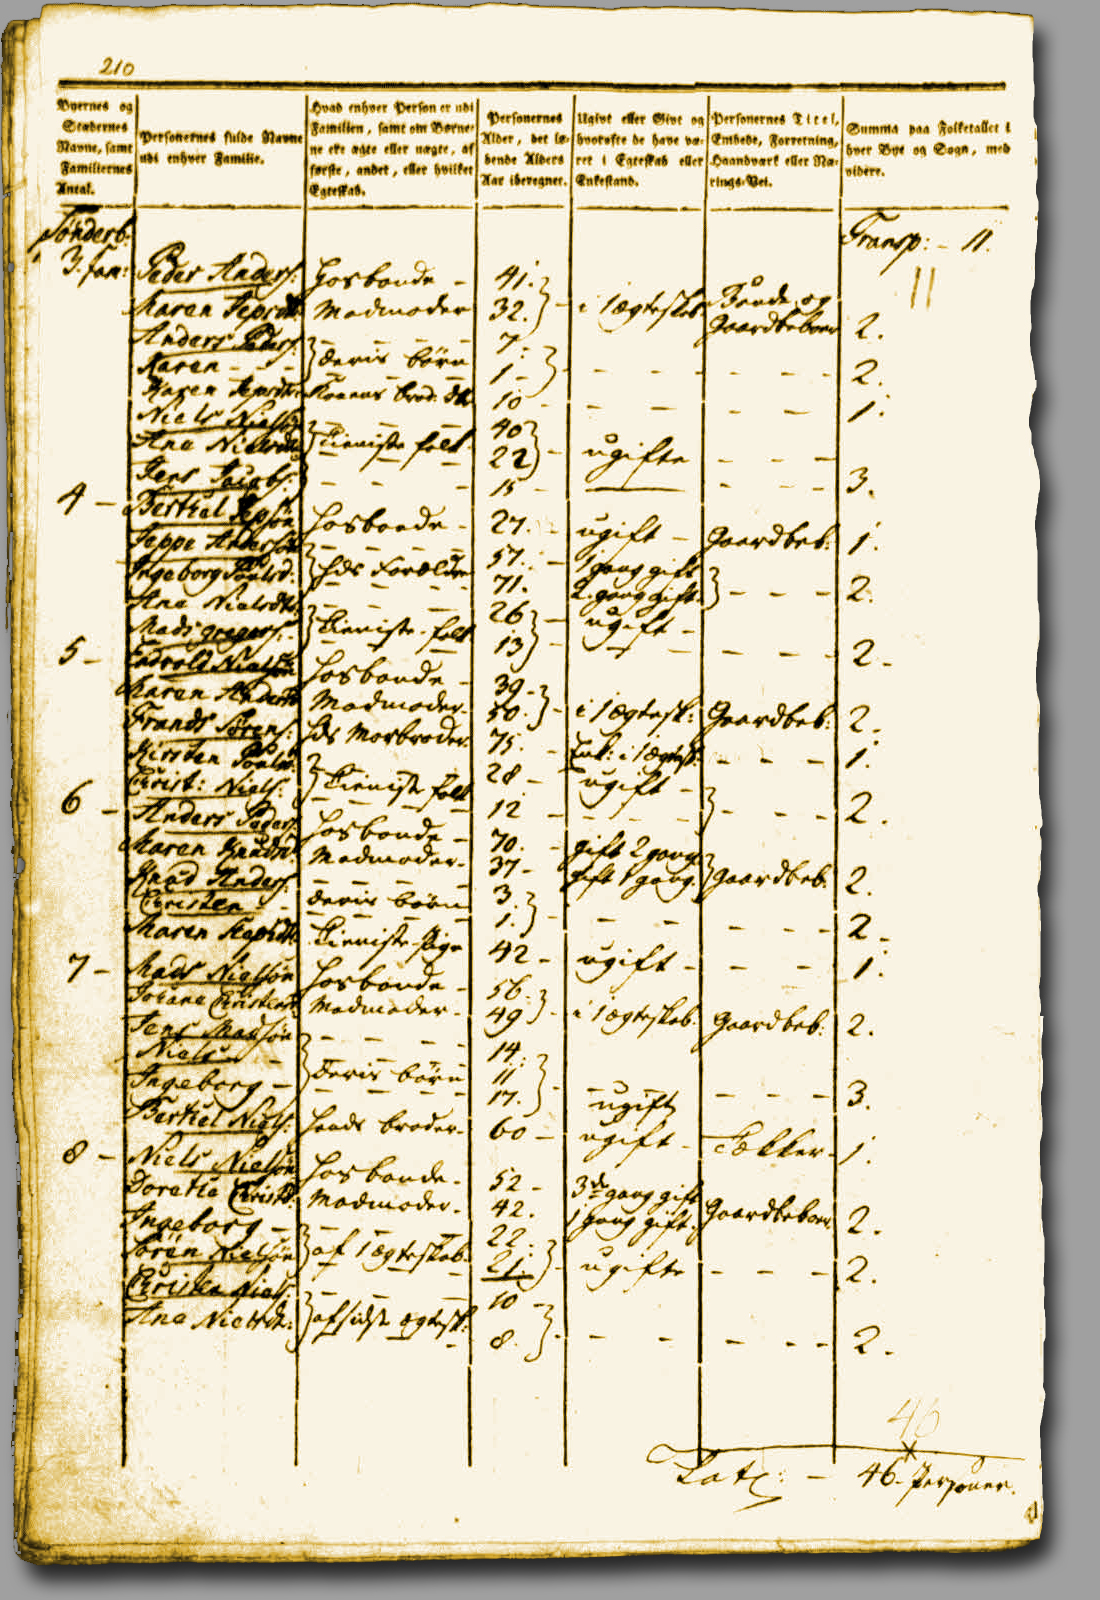 210
Byernes og Stædernes Navne, samt Familiernes Antal.
Personernes fulde Navne udi enhver Familie.
Hvad enhver Person er udi Familien, samt om Børnene ere ægte eller uægte, af første, andet, eller hvilket Egteskab.
Personernes Alder, det løbende Alders Aar iberegnet.
Ugivt eller Givt og hvorofte de have været i Egteskab eller Enkestand.
Personernes Titel, Embede, Forretning, Haandværk eller Nærings-Vei.
Summa paa Folketallet i hver Bye og Sogn, med videre.
Sønderb: Transp: - 11.
11
3. fam: Peder Anders: Hosbonde - 41. i 1 ægteskab Bonde og
Maren Jepsdt. Madmoder 32. Gaardbeboer 2.
Anders Peders: } deris børn 7.
Karen - - - 1 - 2.
Karen Jepsdtr. Konens brod: dtr 10 - 1.
Niels Nielsøn } tieniste folk 40
Ane Nielsdtr 22 ugifte
Jens Jacobs: 15 - 3.
4 - Berthel Jepsøn Hosbonde - 27. ugift - Gaardbeb: 1.
Jeppe Andersøn } Hds Forældre 57. 1 gang gift
Ingeborg Poulsd: 71. 2. gang gift. 2.
Ane Nielsdtr. } tieniste-folk 26 ugift -
Mads gregers: 13 2 -
5 - Nielsøn Hosbonde - 39 -
Maren Andersd Madmoder 50. i 1 ægtesk: Gaardbeb: 2.
Frands Sørens: Hds Morbroder 75. Enk: i 1 ægtesk: 1.
Kirsten Poulsd } tieniste folk 28 - ugift -
Christ: Niels: 12 2.
6 - Anders Peders: Hosbonde - 70. gift 2 gang
Maren Knudsd: Madmoder - 37 - gift 1 gang. Gaardbeb. 2.
Knud Anders: deris børn 3.
Christen - - 1. 2 -
Maren tieniste-pige 42 - ugift - 1.
7 - Mads Nielsøn Hosbonde - 56.
Johane Christensd Madmoder - 49 i 1 ægteskab. Gaardbeb: 2.
Jens Madsøn } deris børn 14.
Niels - 11
Ingeborg - 17. ugift 3.
Berthel Niels: Hands broder - 60 - ugift - Tækker - 1.
8 - Niels Nielsøn Hosbonde - 52 - 3de gang gift
Doretha Christd: Madmoder - 42. 1 gang gift. Gaardbeboer. 2.
Ingeborg - } af 1 ægteskab. 22.
Søren Nielsøn 21. ugifte 2.
Christen Niels: } af sidste ægtesk: 10 -
Ane Nielsdt: 8. 2.
46
Lat: - 46 - Personer.